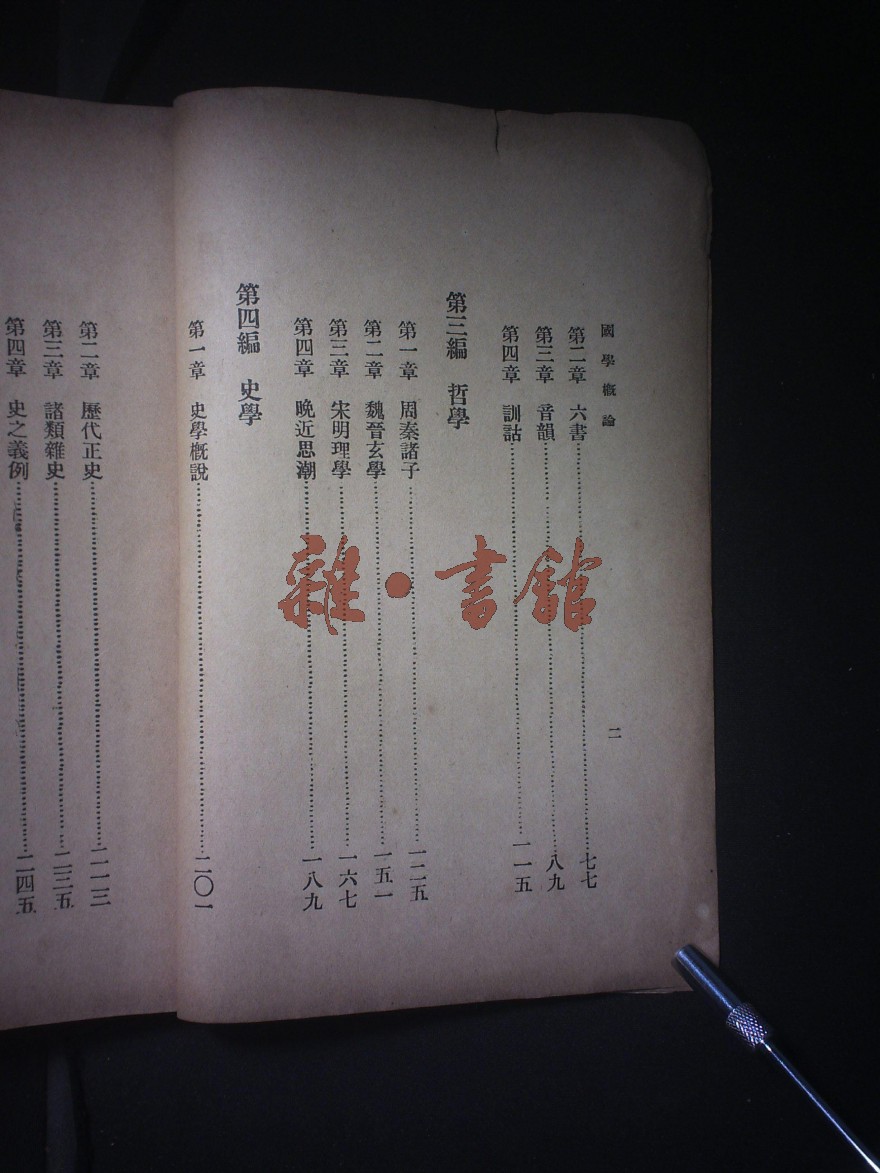 國學概論
二
第二章　六書……七七
第三章　音韻……八九
第四章　訓詁……一一五
第三編　哲學
第一章　周秦諸子……一二五
第二章　魏晉玄學……一五一
第三章　宋明理學……一六七
第四章　晚近思潮……一八九
第四編　史學
第一章　史學概說……二〇一
第二章　歷代正史……二一三
第三章　諸類雜史……二三五
第四章　史之義例……二四五
雜·書館